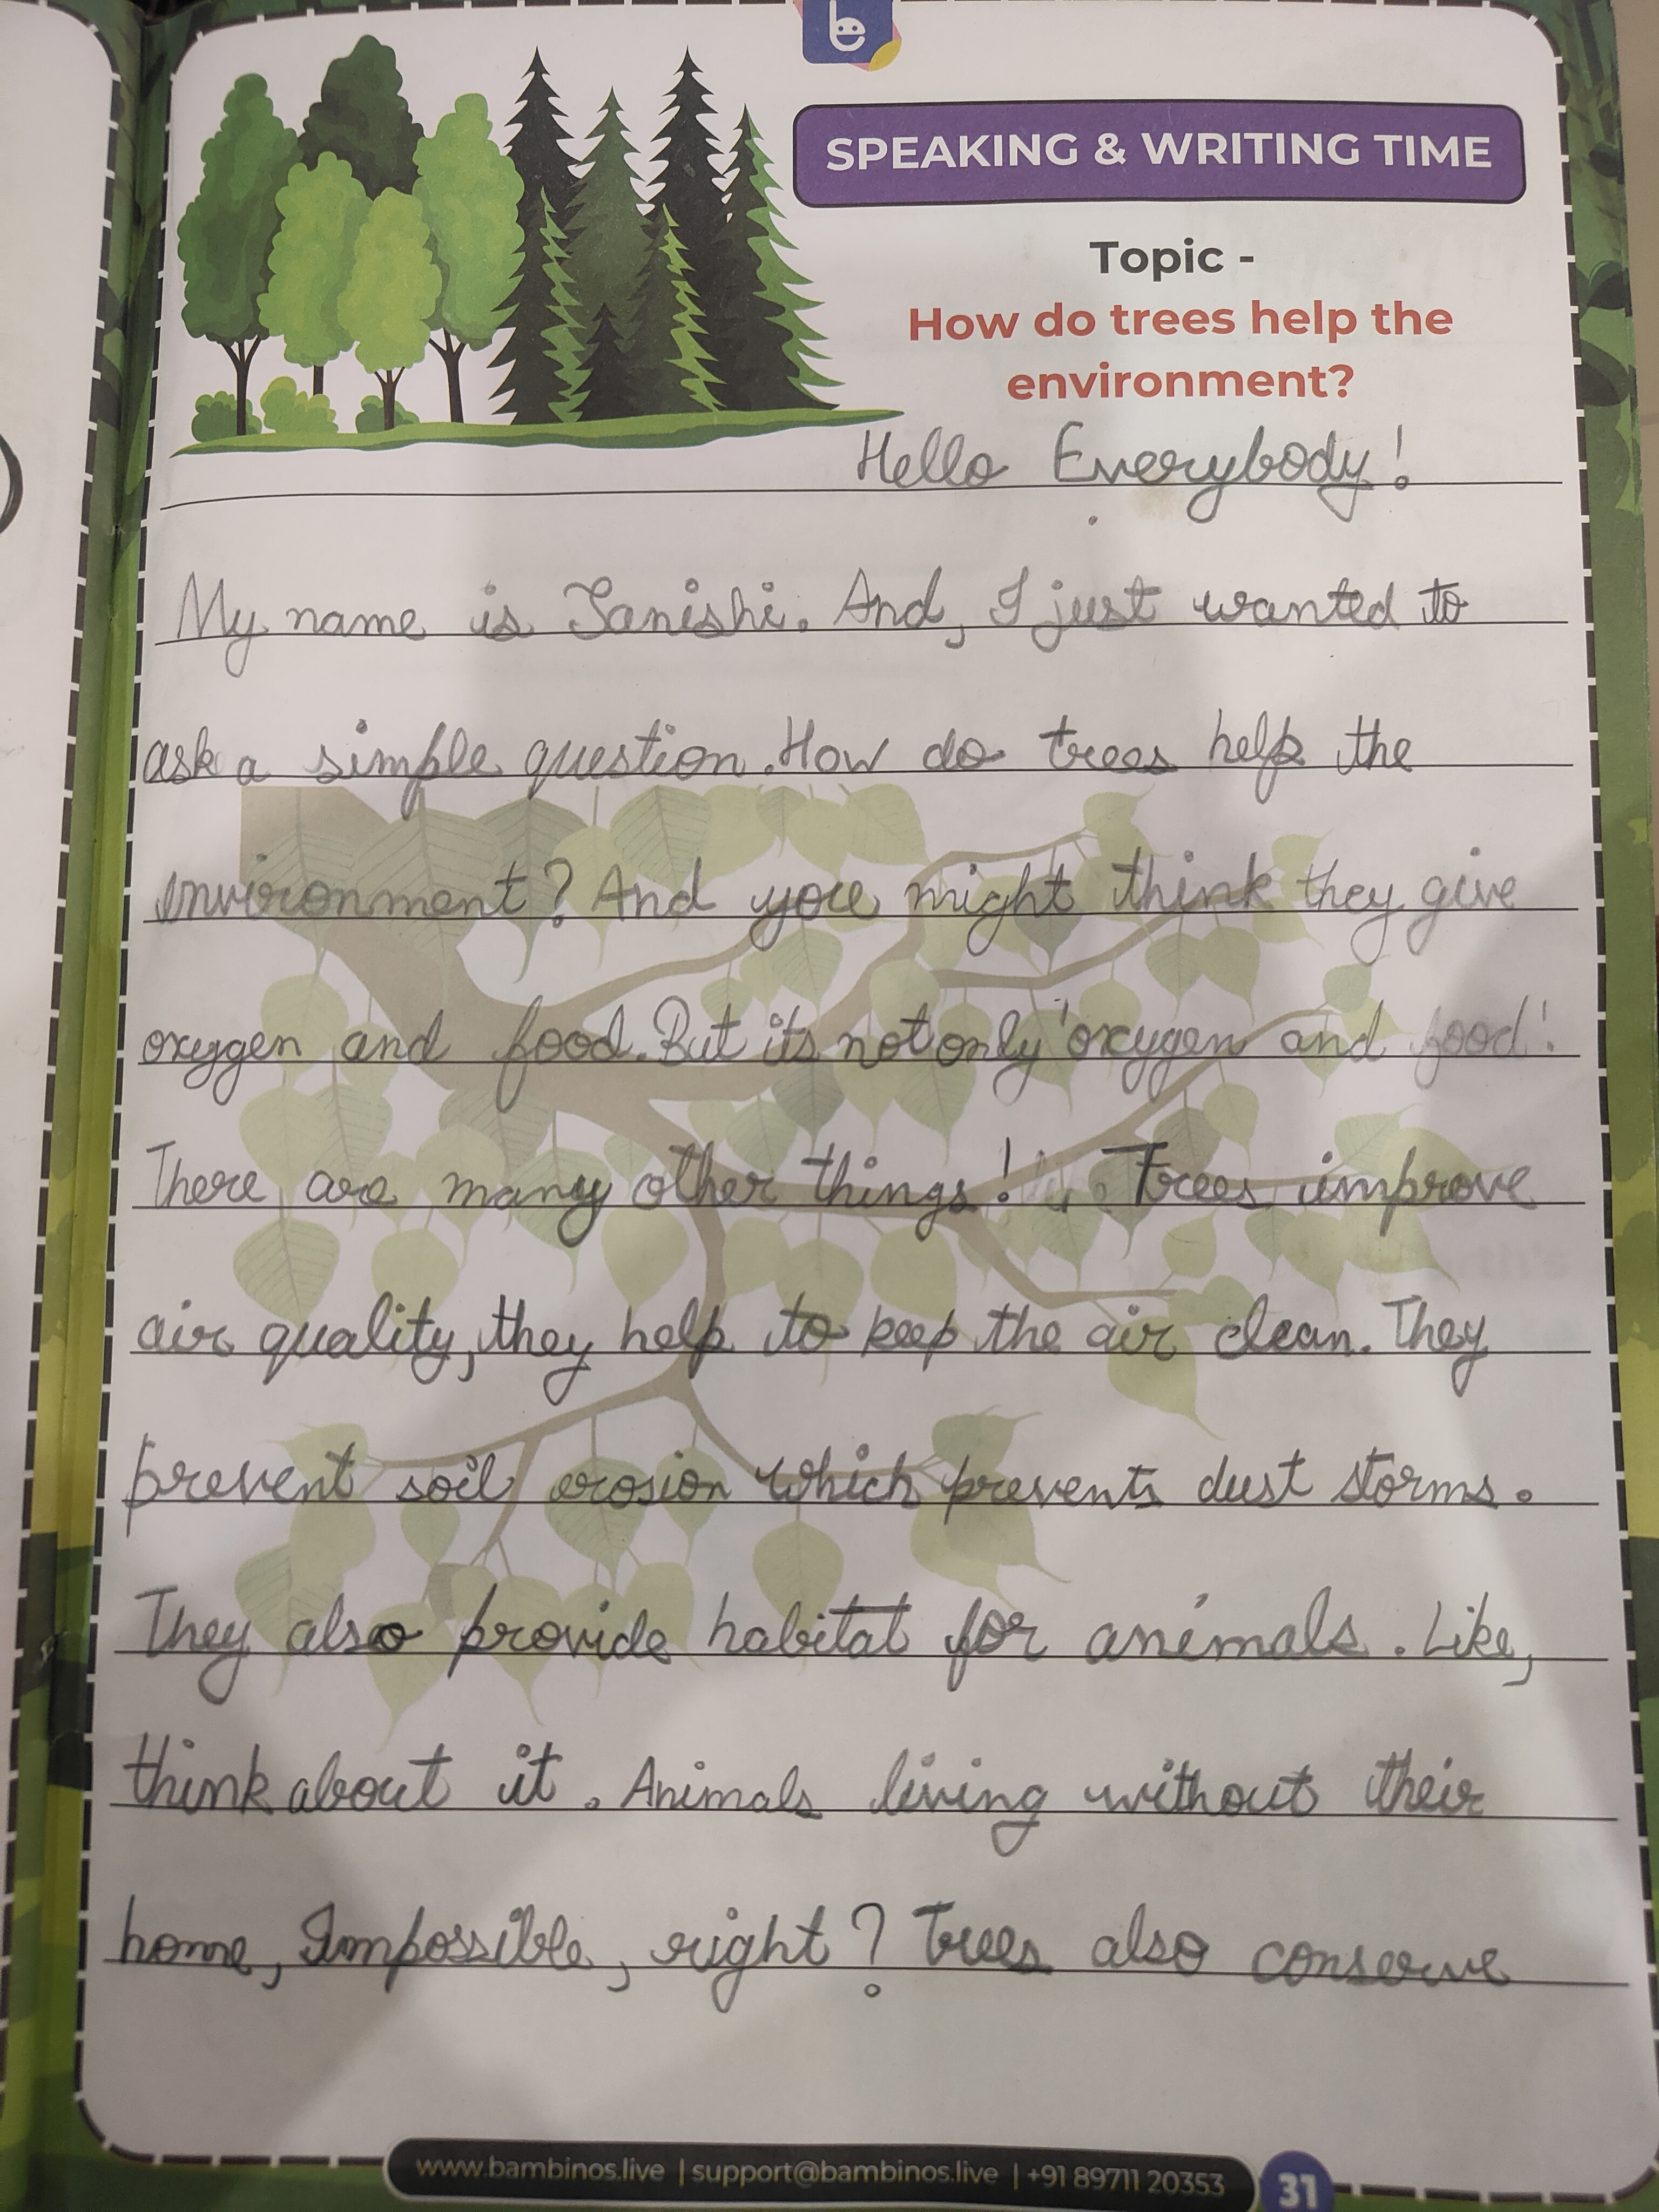 SPEAKING & WRITING TIME
Topic -
How do trees help the
environment?
Hello Everybody!
My name is Tanishi. And, I just wanted to
ask a simple question. How do trees help the
environment? And you might think they give
oxygen and food. But its not only 'oxygen and food'.
There are many other things! Trees improve
air quality, they help to keep the air clean. They
prevent soil erosion which prevents dust storms.
They also provide habitat for animals. Like,
think about it. Animals living without their
home, Impossible, right? Trees also conserve
www.bambinos.live | support@bambinos.live | +91 89711 20353
31